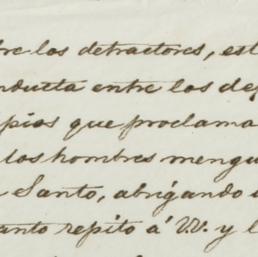 los detractores, est
conducta entre los de
pios que proclama
los hombres mengu
Santo, abrigando
anto repito á VV. y l